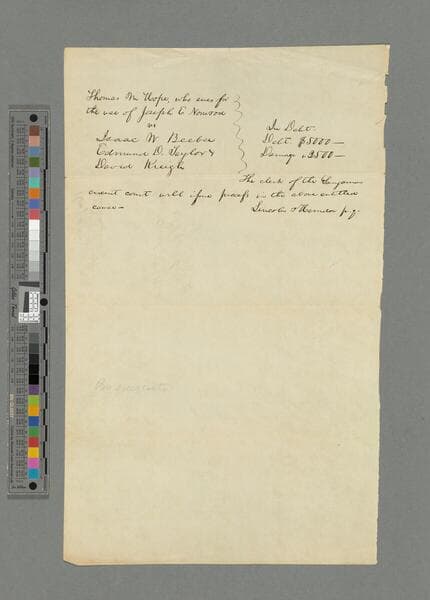 Thomas M. Hope, who sues for
the use of Joseph C
vs
Isaac W.
Edmund D. Taylor &
David Kreigh
In Debt.
Debt $5000—
Damage $2500—
The clerk of the Sangamon
circuit court will issue process in the above entitled
cause—
Lincoln & Herndon p.q.